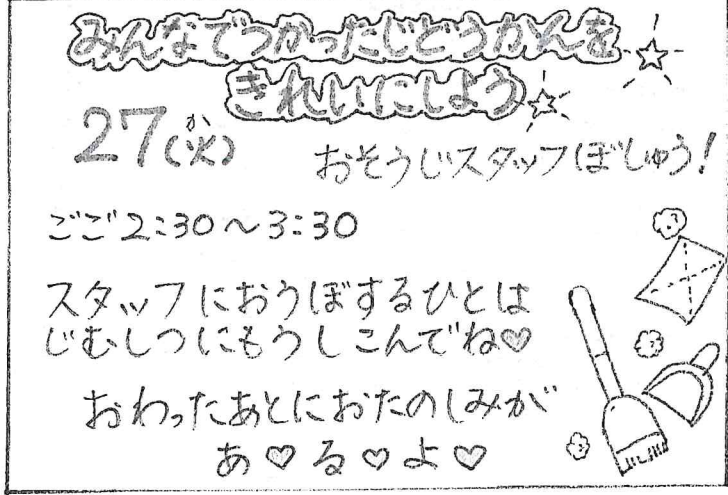 みんなでつかったじどうかんを
きれいにしよう
27(火)
か
おそうじスタッフぼしゅう!
ごご2:30〜3:30
スタッフにおうぼするひとは
じむしつにもうしこんでね♡
おわったあとにおたのしみが
あ♡る♡よ♡